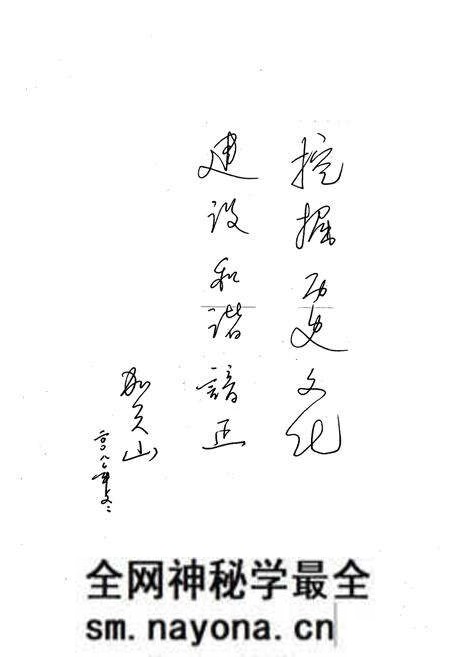 挖掘历史文化
建设和谐諳正
二〇〇八年
全网神秘学最全
sm.nayona.cn